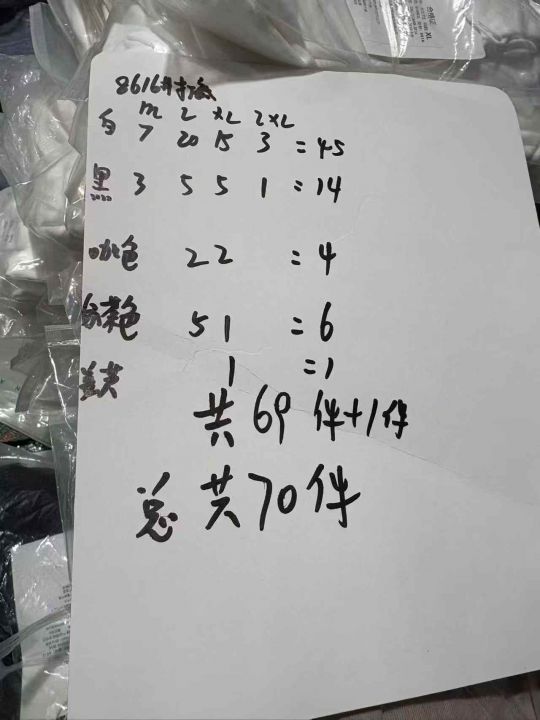 合格证
XL
8616#打底
M L XL 2XL
白 7 20 15 3 =45
黑 3 5 5 1 =14
咖色 2 2 =4
茶色 5 1 =6
1 =1
共69件+1件
总共70件